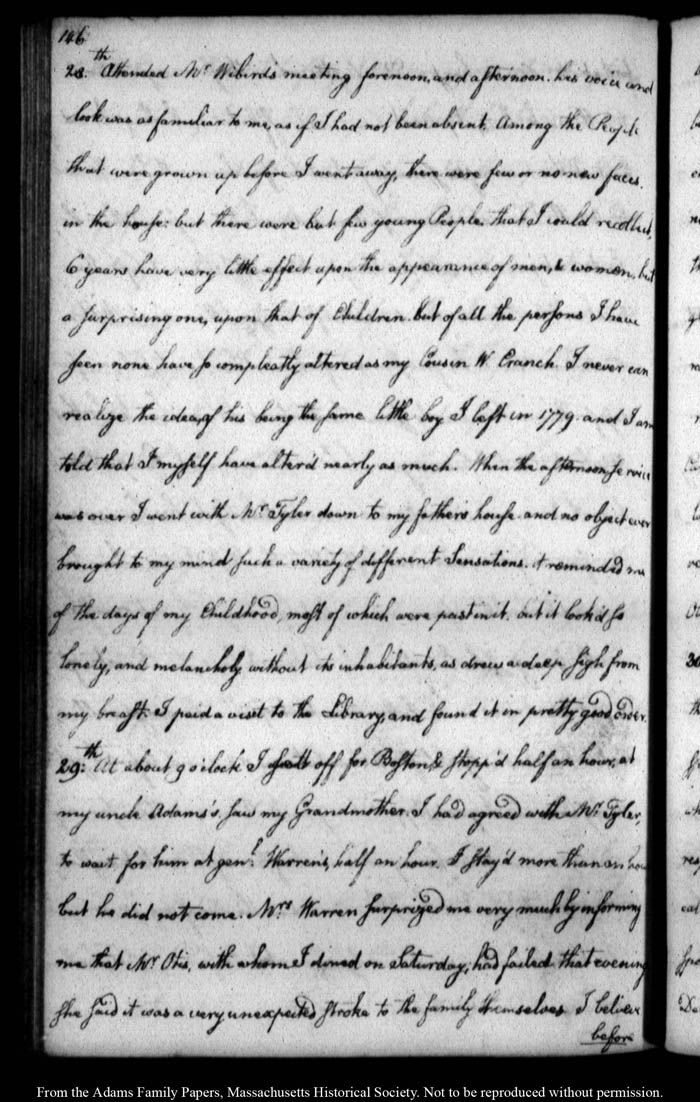 146
28.th Attended Mr. Wibird's meeting forenoon, and afternoon. his voice and
look was as familiar to me, as if I had not been absent. Among the People
that were grown up before I went away, there were few or no new faces.
in the house: but there were but few young People, that I could recollect,
6 years have very little effect upon the appearance of men, & women, but
a surprising one, upon that of Children. but of all the persons I have
seen none have so compleatly altered as my Cousin W. Cranch. I never can
realize the idea, of his being the same little boy I left in 1779. and I am
told that I myself have alter'd nearly as much. When the afternoon service
was over I went with Mr. Tyler down to my father's house. and no object ever
brought to my mind such a variety of different Sensations. it reminded me
of the days of my Childhood, most of which were past in it. but it look'd so
lonely, and melancholy without its inhabitants, as drew a deep sigh from
my breast. I paid a visit to the Library, and found it in pretty good order.
29.th At about 9 o'clock I sett off for Boston, & stopp'd half an hour, at
my uncle Adams's, saw my Grandmother. I had agreed with Mr. Tyler,
to wait for him at genl. Warren's, half an hour. I stay'd more than an hour
but he did not come. Mrs. Warren surprized me very much by informing
me that Mr. Otis, with whom I dined on Saturday, had failed that evening
she said it was a very unexpected stroke to the family themselves I believe
before
From the Adams Family Papers, Massachusetts Historical Society. Not to be reproduced without permission.